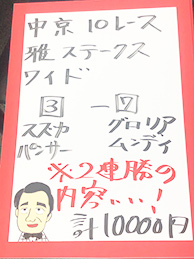 中京10レース
雅ステークス
ワイド
3 - 7
スズカ グロリア
パンサー ムンディ
※2連勝の
内容...!
計10000円